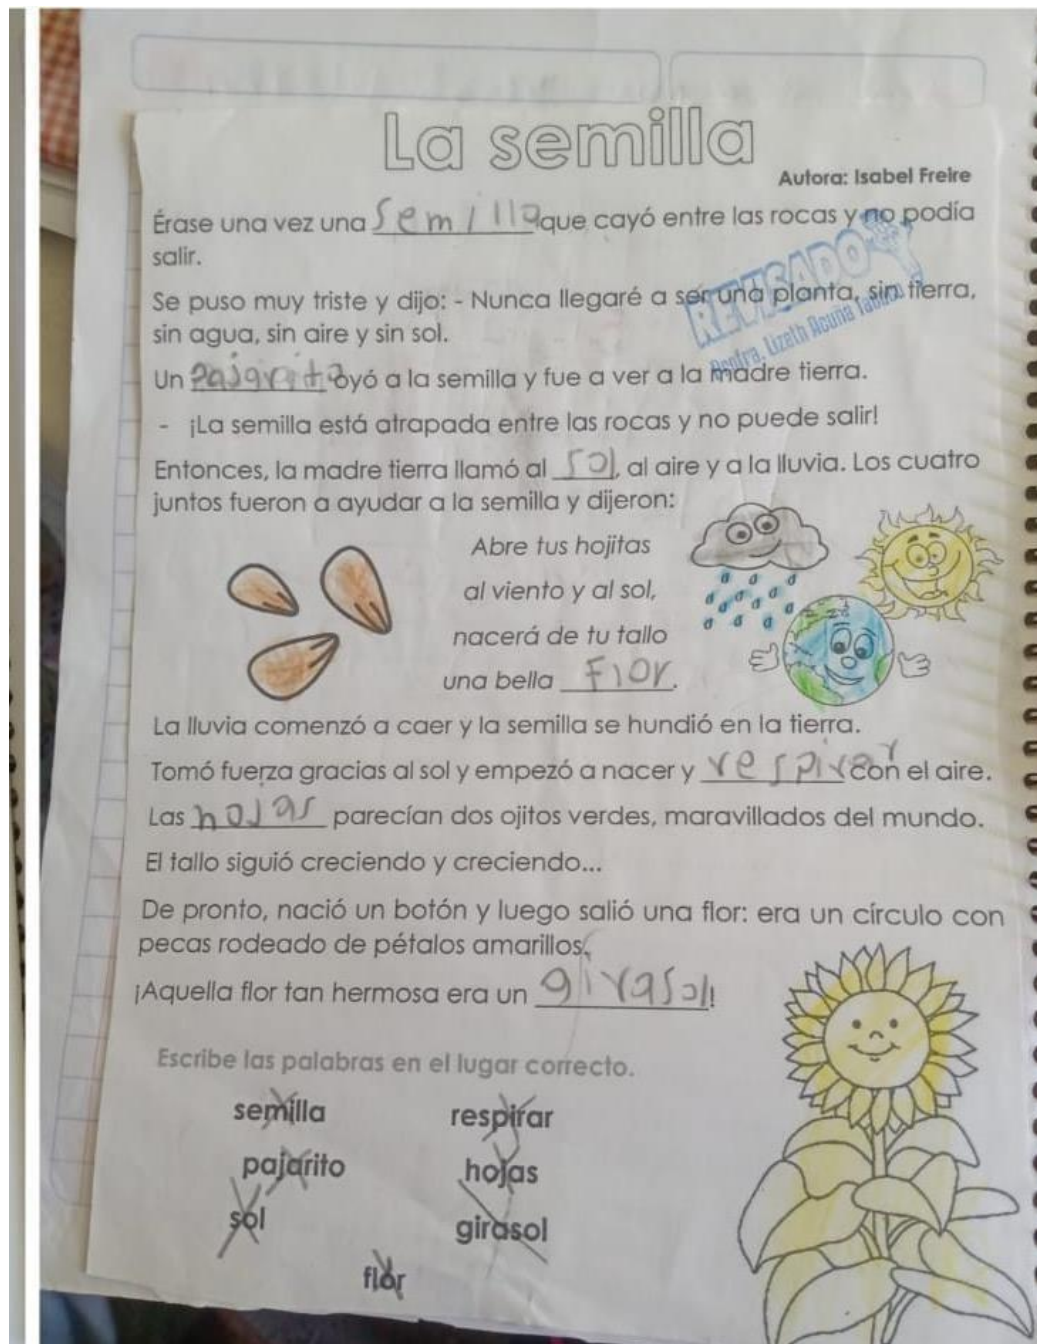 La semilla
Autora: Isabel Freire
Érase una vez una semilla que cayó entre las rocas y no podía
salir.
Se puso muy triste y dijo: - Nunca llegaré a ser una planta, sin tierra,
sin agua, sin aire y sin sol.
REVISADO
Lizeth Acuña
Un pajarito oyó a la semilla y fue a ver a la madre tierra.
- ¡La semilla está atrapada entre las rocas y no puede salir!
Entonces, la madre tierra llamó al sol, al aire y a la lluvia. Los cuatro
juntos fueron a ayudar a la semilla y dijeron:
Abre tus hojitas
al viento y al sol,
nacerá de tu tallo
una bella Flor.
La lluvia comenzó a caer y la semilla se hundió en la tierra.
Tomó fuerza gracias al sol y empezó a nacer y respirar con el aire.
Las hojas parecían dos ojitos verdes, maravillados del mundo.
El tallo siguió creciendo y creciendo...
De pronto, nació un botón y luego salió una flor: era un círculo con
pecas rodeado de pétalos amarillos.
¡Aquella flor tan hermosa era un girasol!
Escribe las palabras en el lugar correcto.
semilla respirar
pajarito hojas
sol girasol
flor